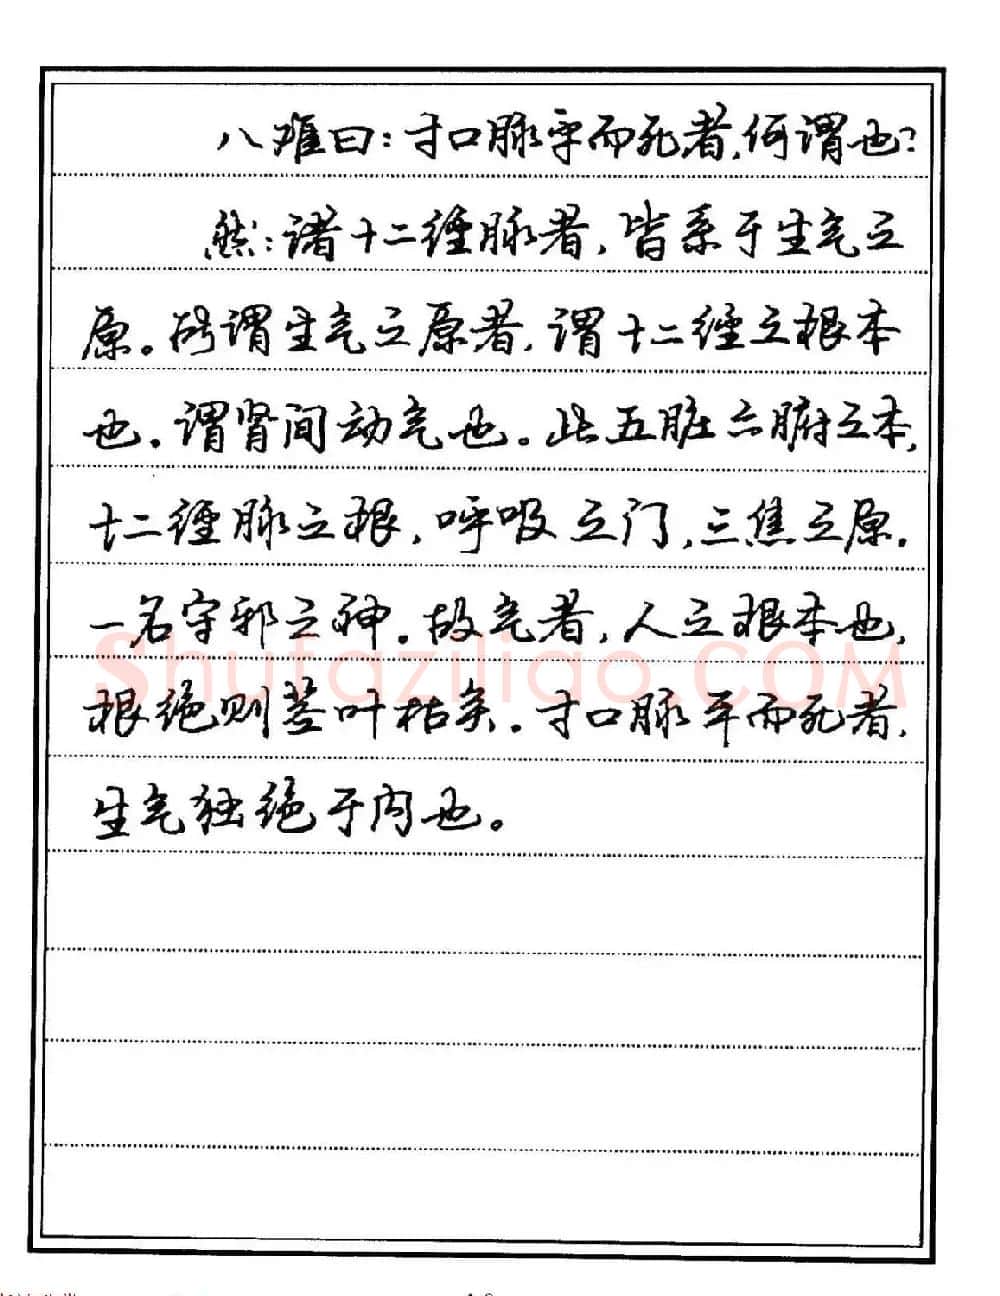 八难曰：寸口脉平而死者，何谓也？
然：诸十二经脉者，皆系于生气之
原。所谓生气之原者，谓十二经之根本
也。谓肾间动气也。此五脏六腑之本，
十二经脉之根，呼吸之门，三焦之原。
一名守邪之神。故气者，人之根本也，
根绝则茎叶枯矣。寸口脉平而死者，
生气独绝于内也。
Shufaziliao.COM